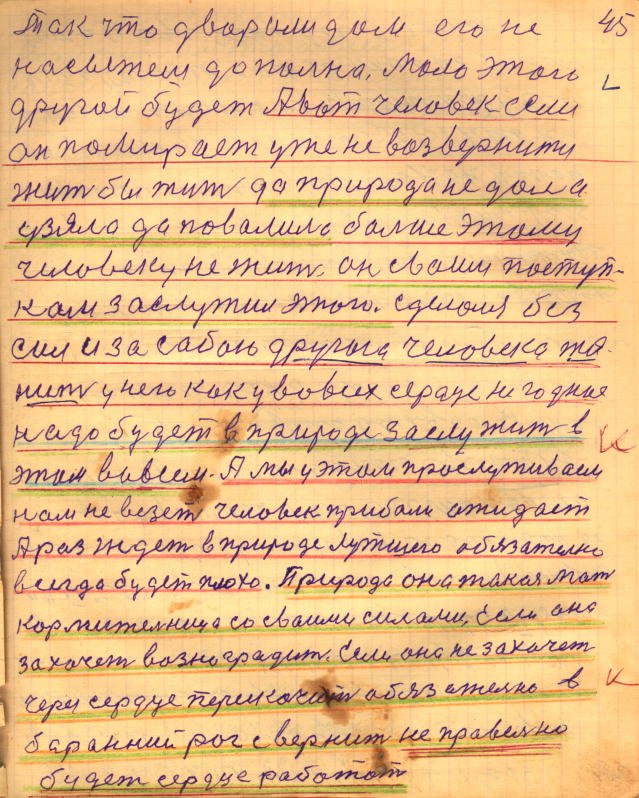 Так что двораlи дом его не 45
насытет до полна. Мало этого
другой будет А вот человек если
он помирает уже не возвернити
жит бы жит да природа не дала
узяла да повалила балше этому
человеку не жит. он своим поступ-
кам заслужил этого. сделался без
сил и за сабою другога человека тя-
нит у него как у вовсех сердце негодное
надо будет в природе заслужит в
этом вовсем. А мы у этом прослуживаем
нам не везет человек прибали ожидает
А раз ждет в природе лутшего обязателно
всегда будет плохо. Природа она такая мат
кормителница со своими силами, если она
захочет возноградит. Если она не захочет
через сердце перикочит обязателно в
баранний рог свернит не правелно
будет сердце работат